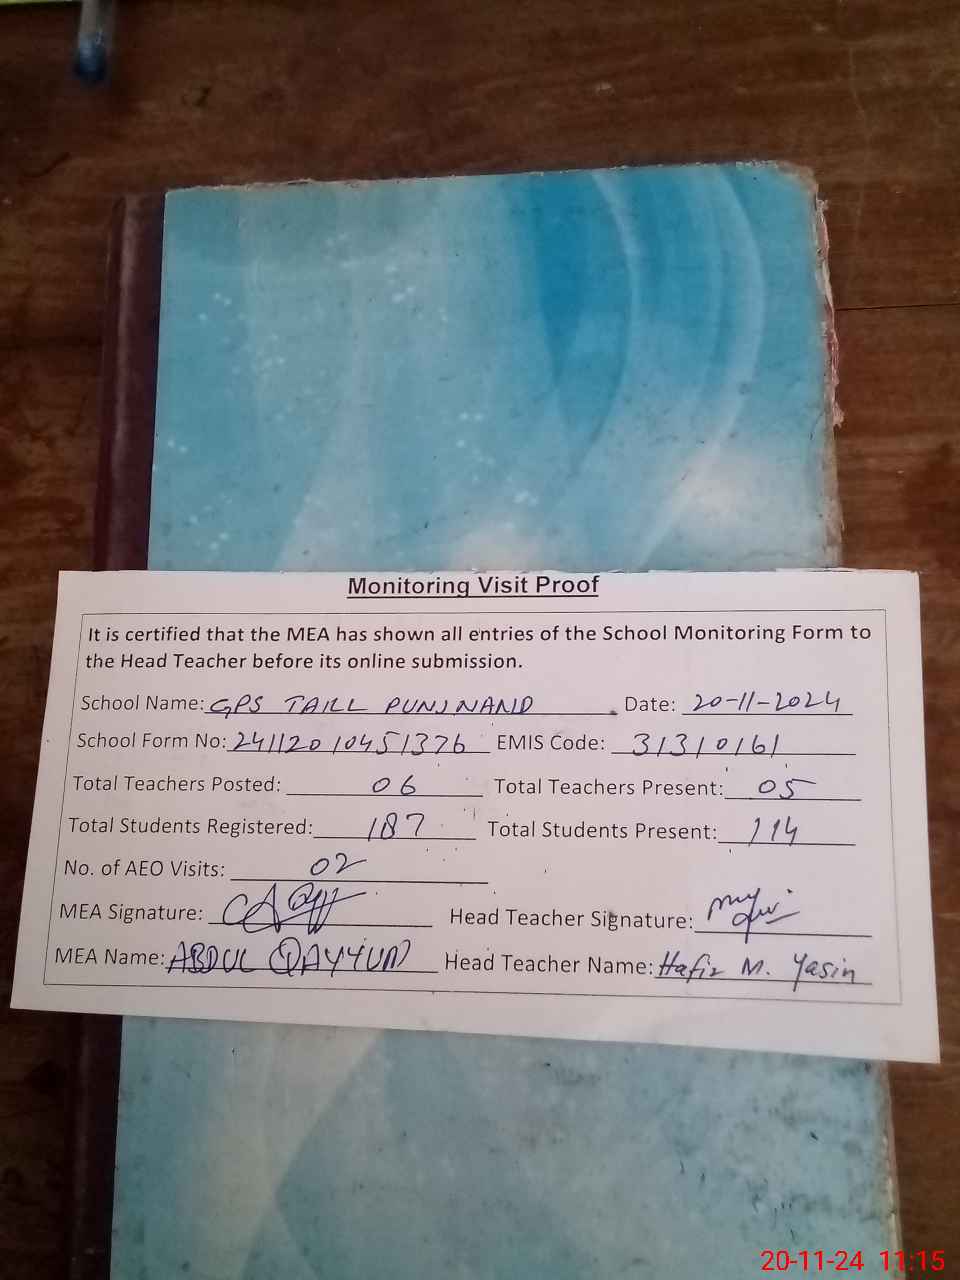 Monitoring Visit Proof
It is certified that the MEA has shown all entries of the School Monitoring Form to
the Head Teacher before its online submission.
School Name: GPS TAILL PUNJNAND Date: 20-11-2024
School Form No: 24112010451376 EMIS Code: 31310161
Total Teachers Posted: 06 Total Teachers Present: 05
Total Students Registered: 187 Total Students Present: 114
No. of AEO Visits: 02
MEA Signature: Head Teacher Signature:
MEA Name: ABDUL QAYYUM Head Teacher Name: Hafiz M. Yasin
20-11-24 11:15